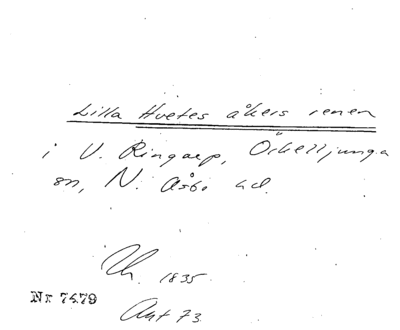 Lilla Hvetes åkers renen
i V. Ringarp, Örkelljunga
sn, N. Åsbo hd.
1835
Nr 7479
Akt 73